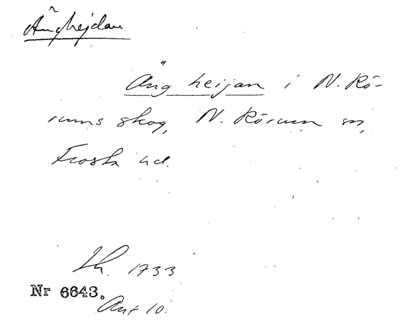 Änghejdan
Äng heijan i N. Rö-
rums skog, N. Rörum sn,
Frosta hd.
Lh. 1733
Nr 6643.
Ant 10.